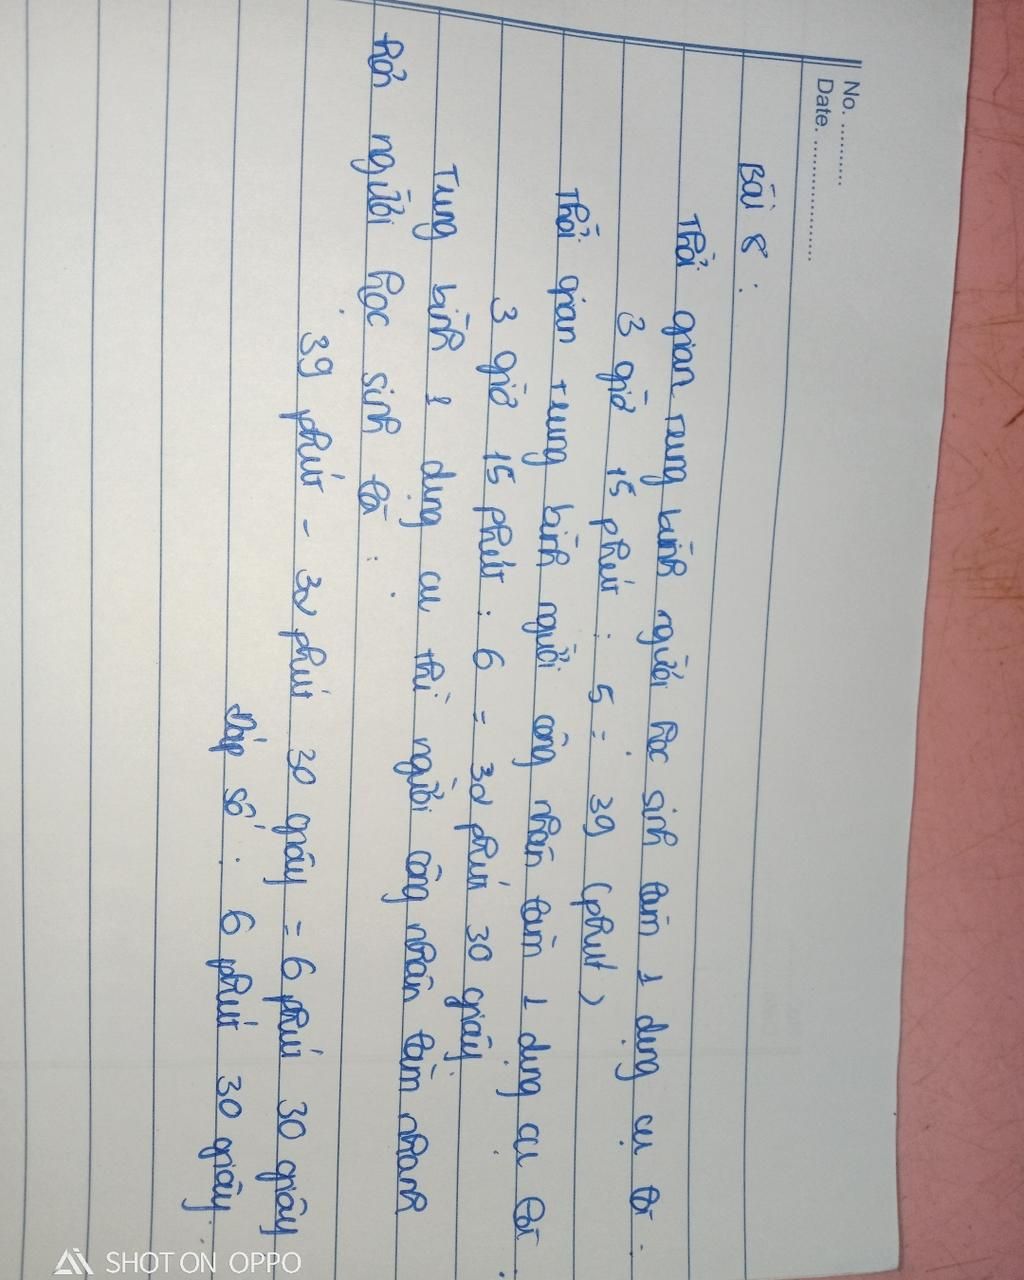 No. ...........
Date. ......................
Bài 8 :
Thời gian trung bình người học sinh làm 1 dụng cụ là :
3 giờ 15 phút : 5 = 39 (phút)
Thời gian trung bình người công nhân làm 1 dụng cụ là :
3 giờ 15 phút : 6 = 32 phút 30 giây
Trung bình 1 dụng cụ thì người công nhân làm nhanh
hơn người học sinh là :
39 phút - 32 phút 30 giây = 6 phút 30 giây
Đáp số : 6 phút 30 giây.
SHOT ON OPPO